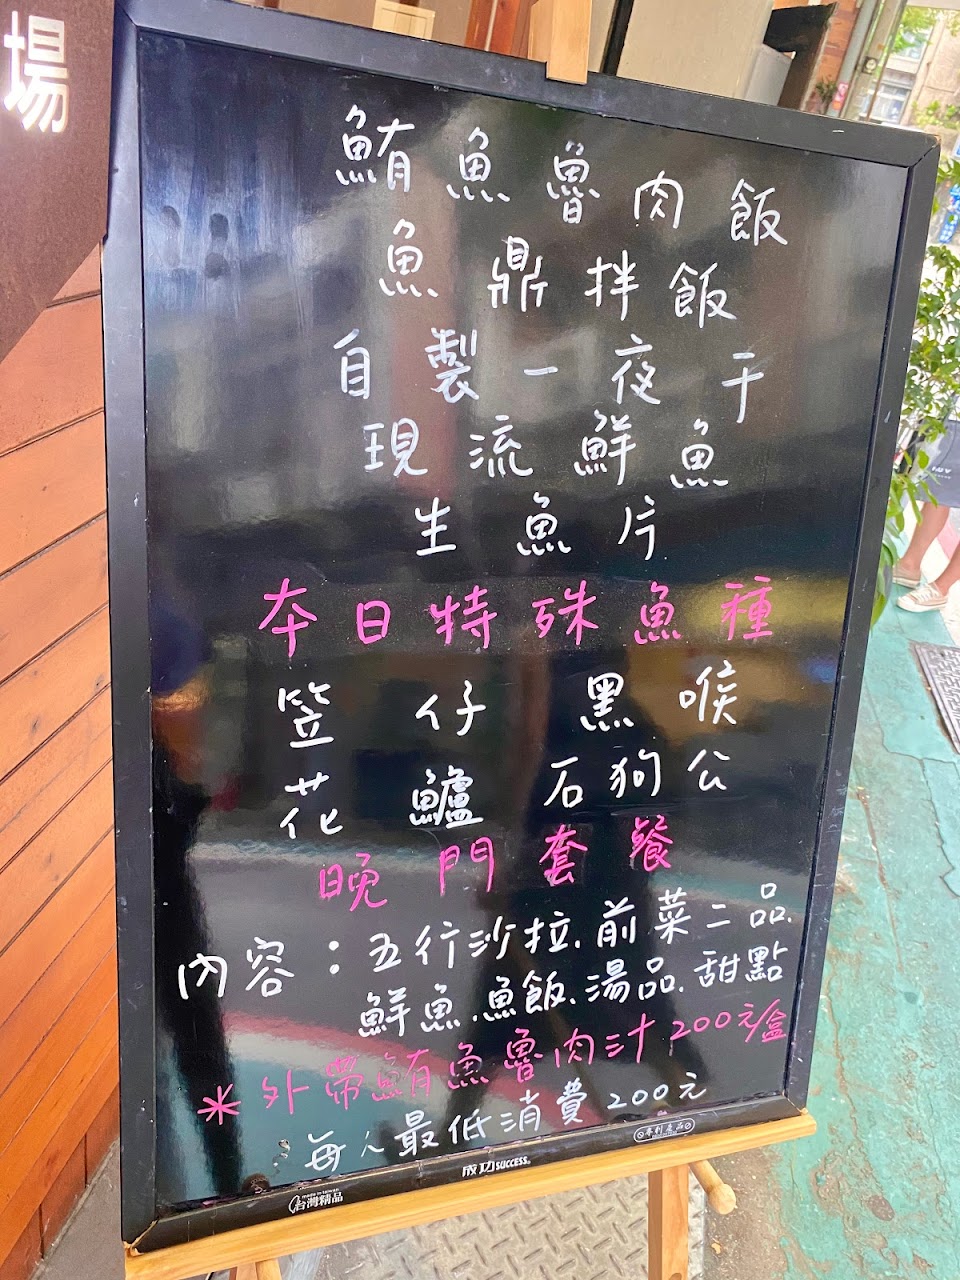 場
鮪魚魯肉飯
魚鼎拌飯
自製一夜干
現流鮮魚
生魚片
本日特殊魚種
笠仔 黑喉
花鱸 石狗公
晚門套餐
內容：五行沙拉.前菜二品.
鮮魚.魚飯.湯品.甜點
*外帶鮪魚魯肉汁,200元/盒
每人最低消費200元
成功SUCCESS®
專利產品
MADE IN TAIWAN
台灣精品